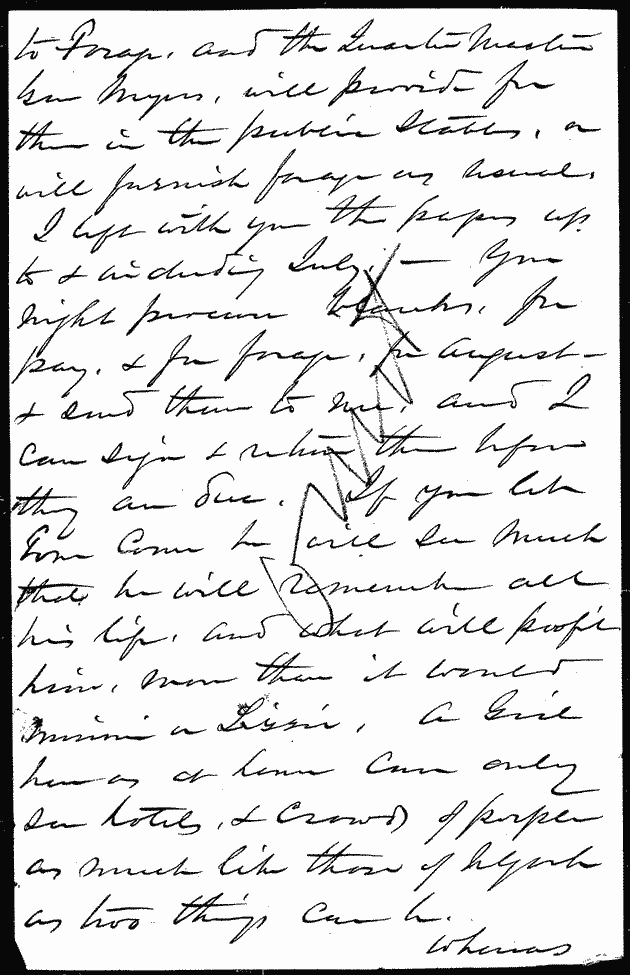 to Forage, and the Quarter Master
Gen Myers, will provide for
them in the public Stables, or
will furnish forage as usual.
I left with you the papers up
to & including July, — You
might procure blanks, for
pay, & for forage, for August —
& send them to me, and I
can sign & return them before
they are due. If you let
Tom Come he will see much
that he will remember all
his life, and what will profit
him, more than it would
Minnie or Lizzie, A Girl
here as at home can only
see hotels, & Crowds of people
as much like those of N York
as two things can be.
whereas